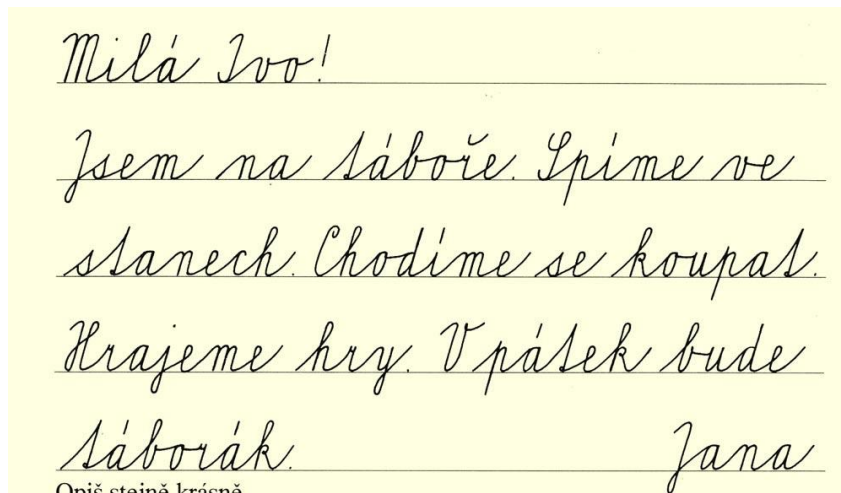 Milá Ivo!
Jsem na táboře. Spíme ve
stanech. Chodíme se koupat.
Hrajeme hry. V pátek bude
táborák. Jana
Opiš stejně krásně